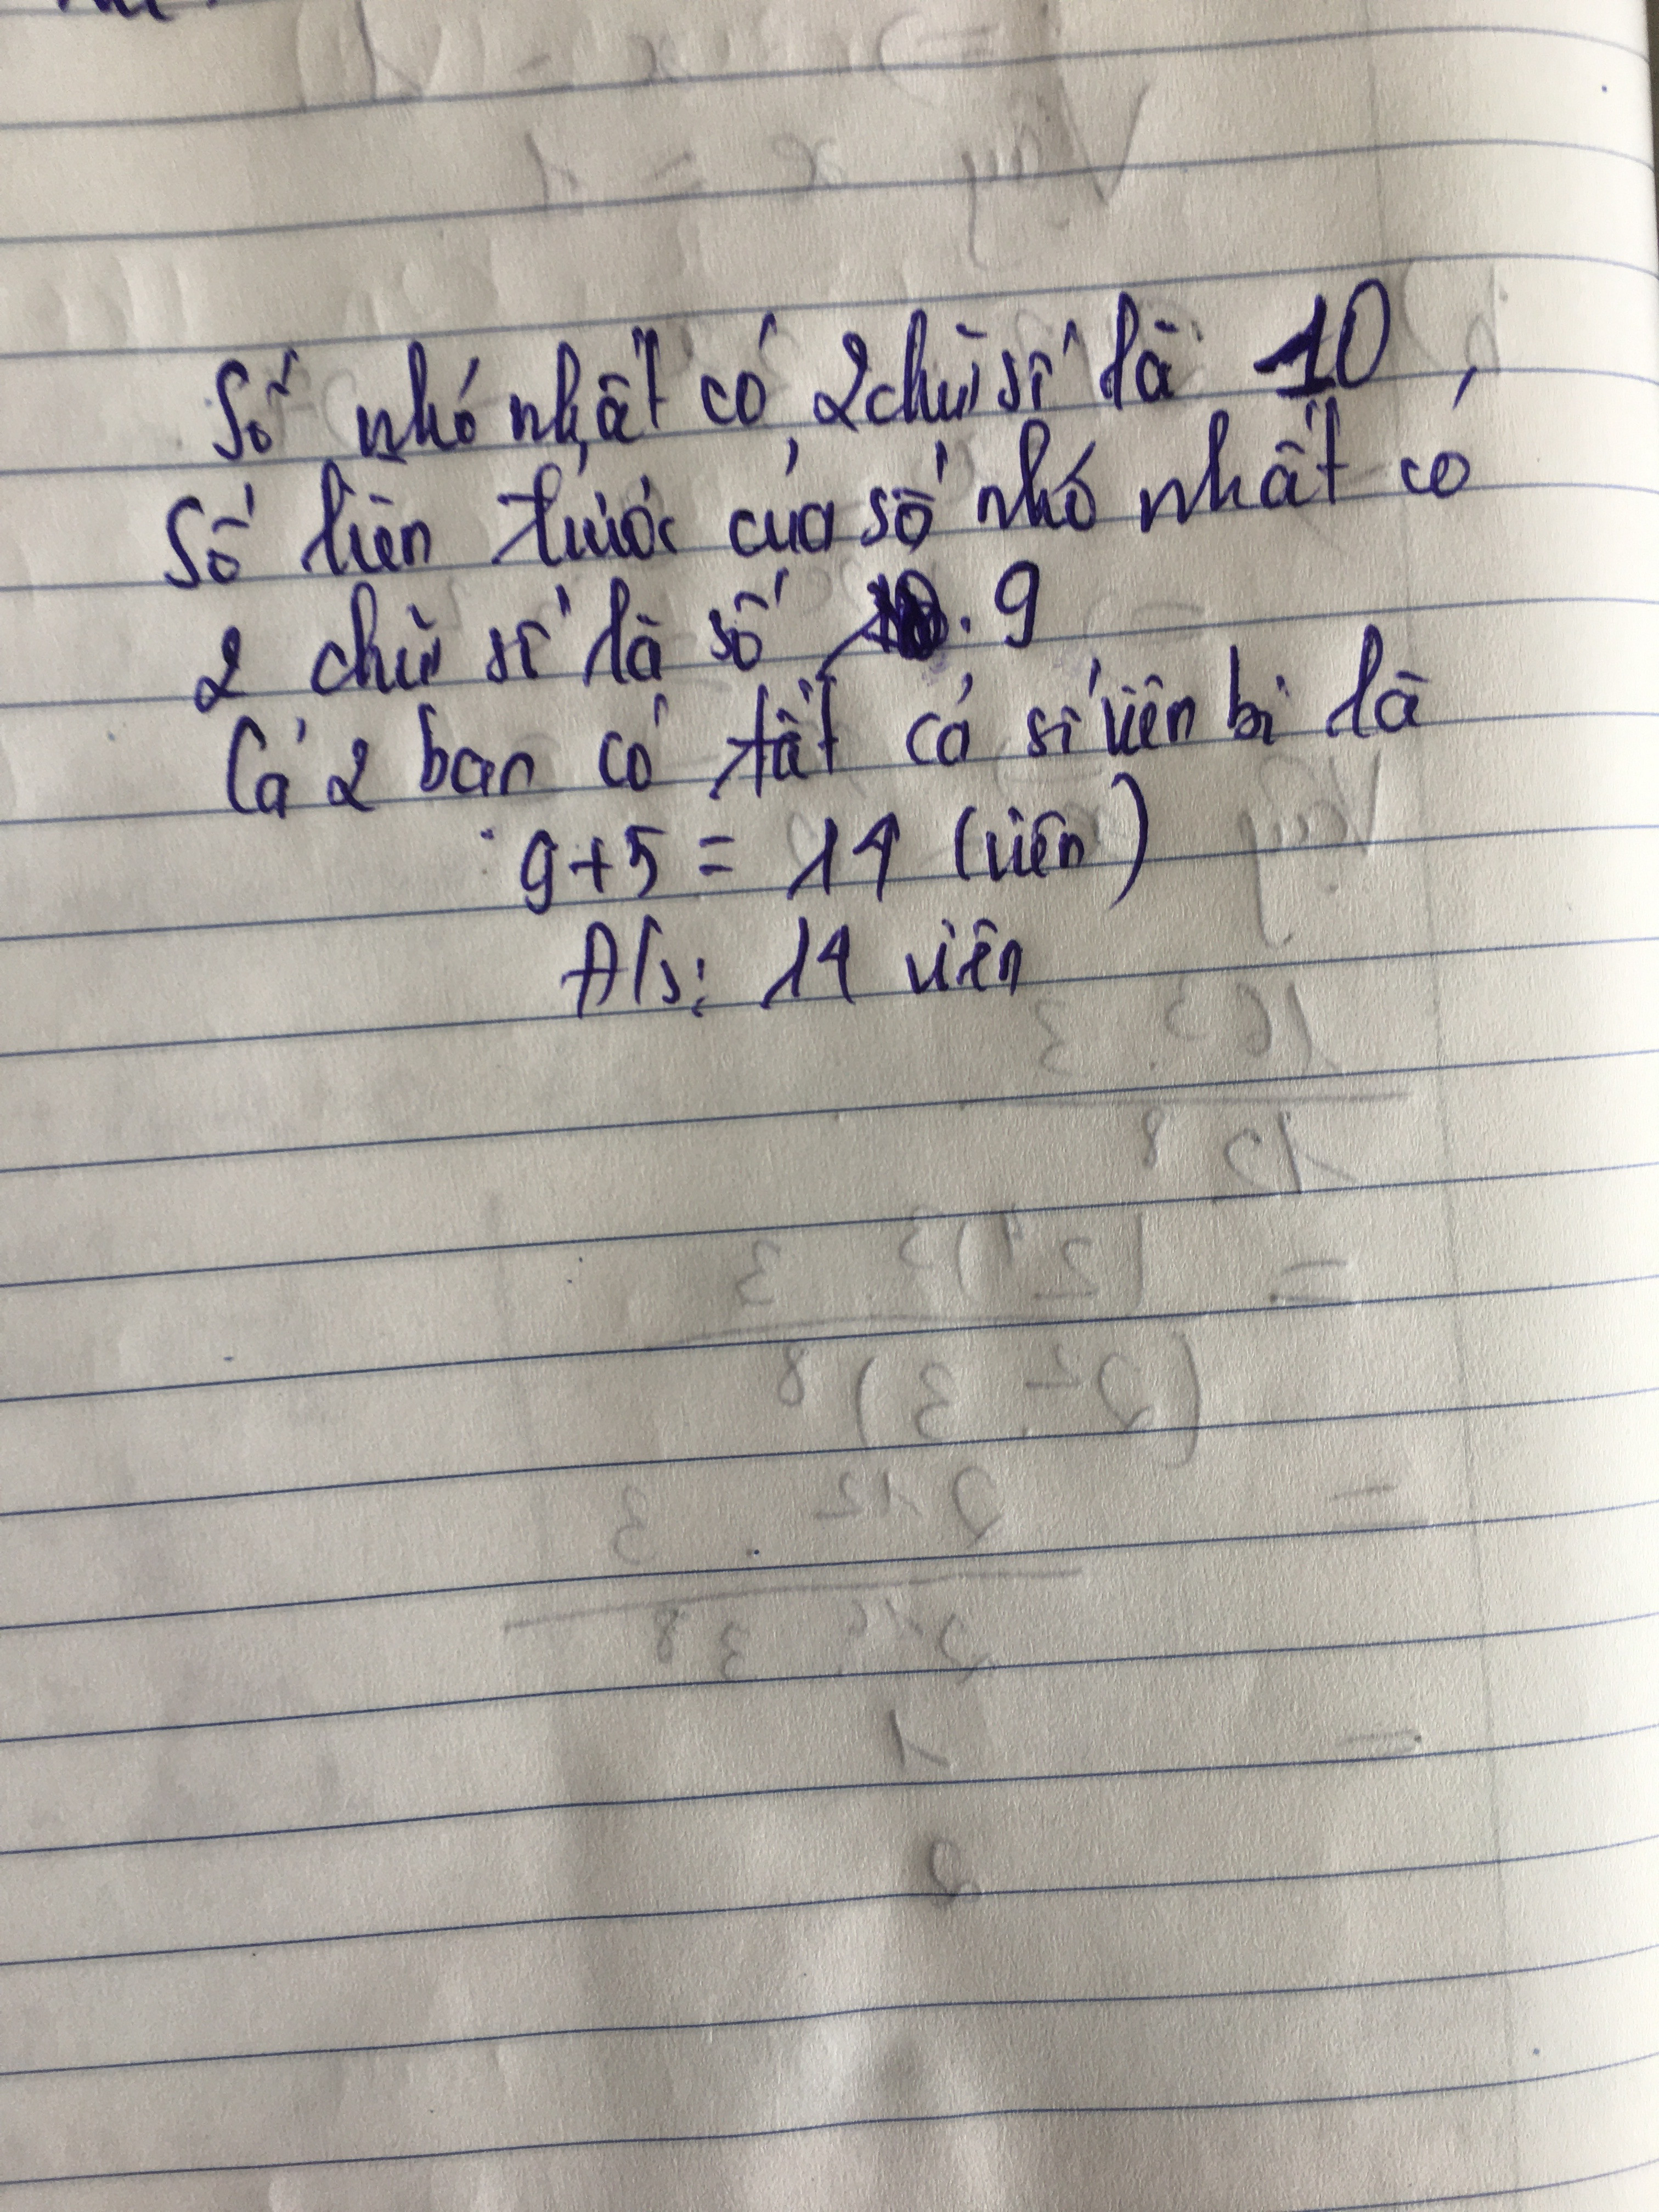 Số nhỏ nhất có 2 chữ số là 10,
Số liền trước của số nhỏ nhất có
2 chữ số là số 9
Cả 2 bạn có tất cả số viên bi là
9+5 = 14 (viên)
Đ/s: 14 viên